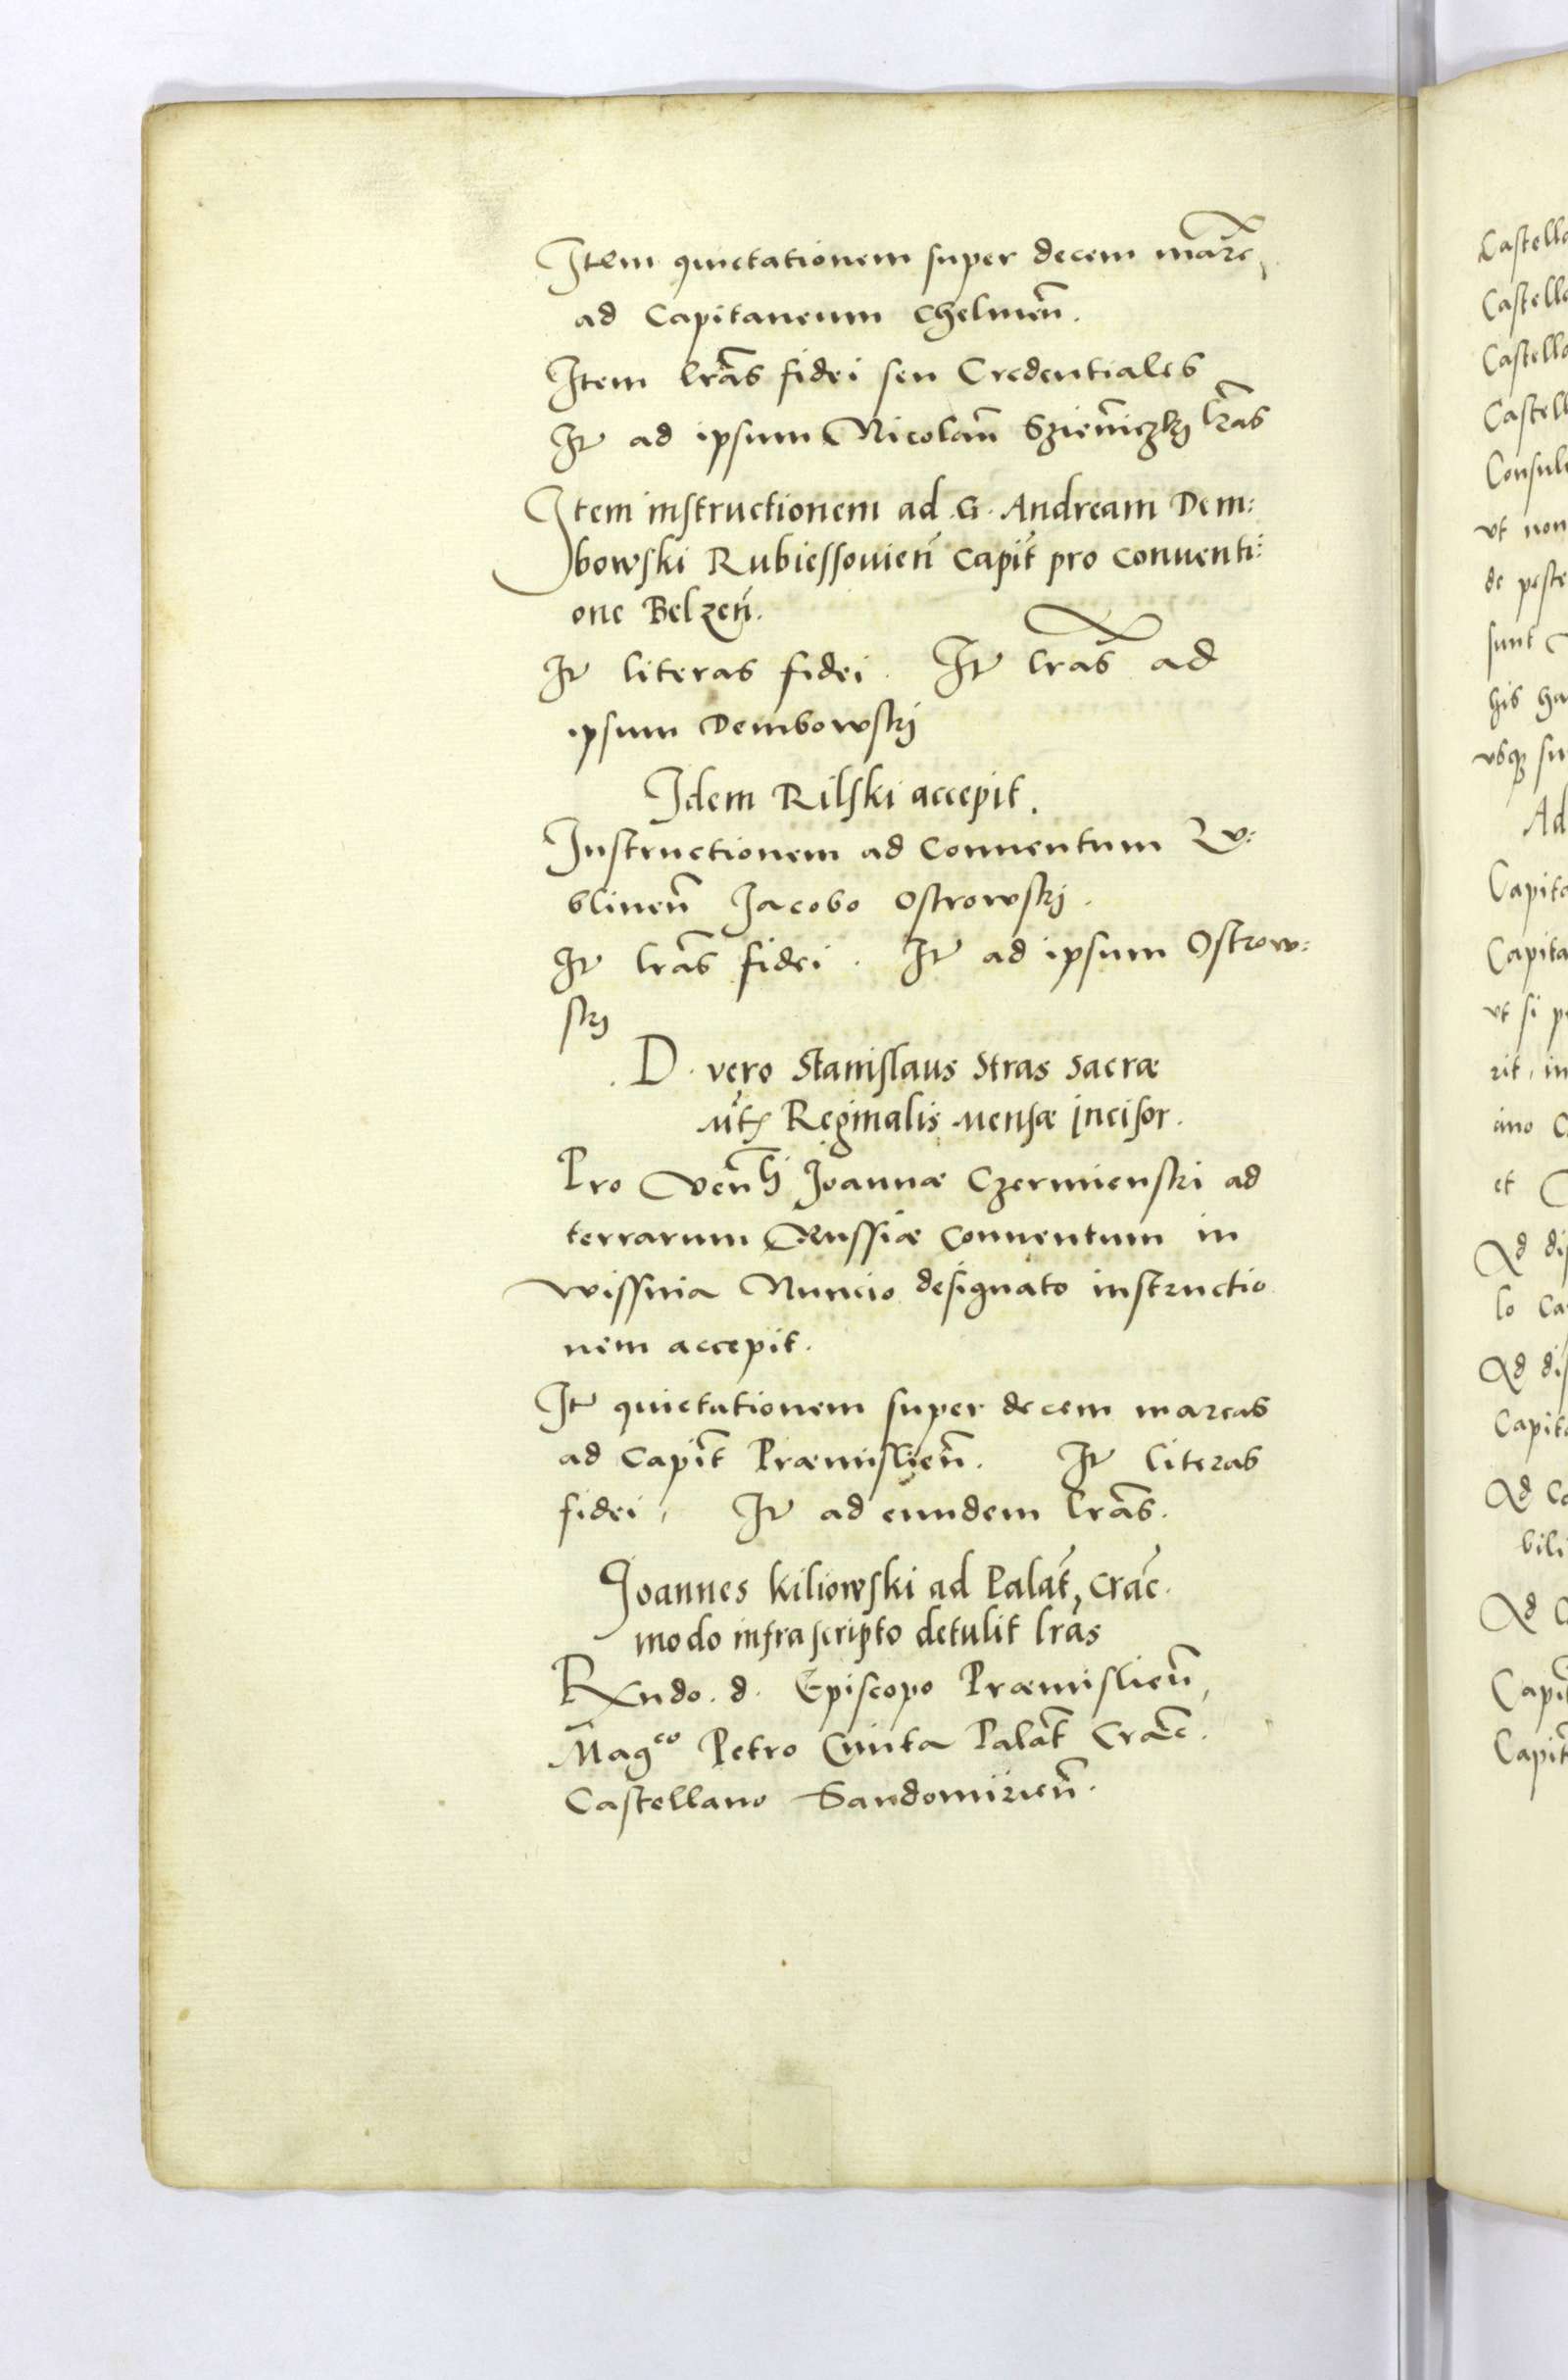 Item quietationem super decem marc̃,
ad Capitaneum Chelmeñ.
Item lr̃as fidei seu Credentiales
It̃ ad ipsum Nicolaũ Szieñiczkj lr̃as
Item instructionem ad .G. Andream Dem:
bowski Rubiessouieñ Capit̃ pro conuenti:
one Belzeñ.
It̃ literas fidei. It̃ lr̃as ad
ipsum Dembowskj
Idem Rilski accepit.
Instructionem ad Conuentum Lv:
blineñ Jacobo Ostrowskj.
It̃ lr̃as fidei. It̃ ad ipsum Ostrow:
skj
D. vero Stanislaus Stras Sacræ
Reginalis Mensæ incisor.
Pro Joannæ Czermienski ad
terrarum Russiæ Conuentum in
Wissnia Nuncio designato instructio
nem accepit.
It̃ quietationem super decem marcas
ad Capit̃ Præmislieñ. It̃ literas
fidei, It̃ ad eundem lr̃as.
Joannes Kiliowski ad Palat̃, Crac̃.
modo infrascripto detulit lr̃as
Rx̃ndo. d. Episcopo Præmislieñ,
Mag^co Petro Cmita Palat̃ Crac̃.
Castellano Sandomirieñ.
Castell
Castell
Castell
Castell
Consul
vt non
de peste
sunt
his ha
vbiq3 su
Ad
Capita
Capita
vt si p
rit, in
ano C
et
Ad di
lo Ca
Ad dis
Capit
Ad Ca
bili
Ad C
Capit̃
Capit̃